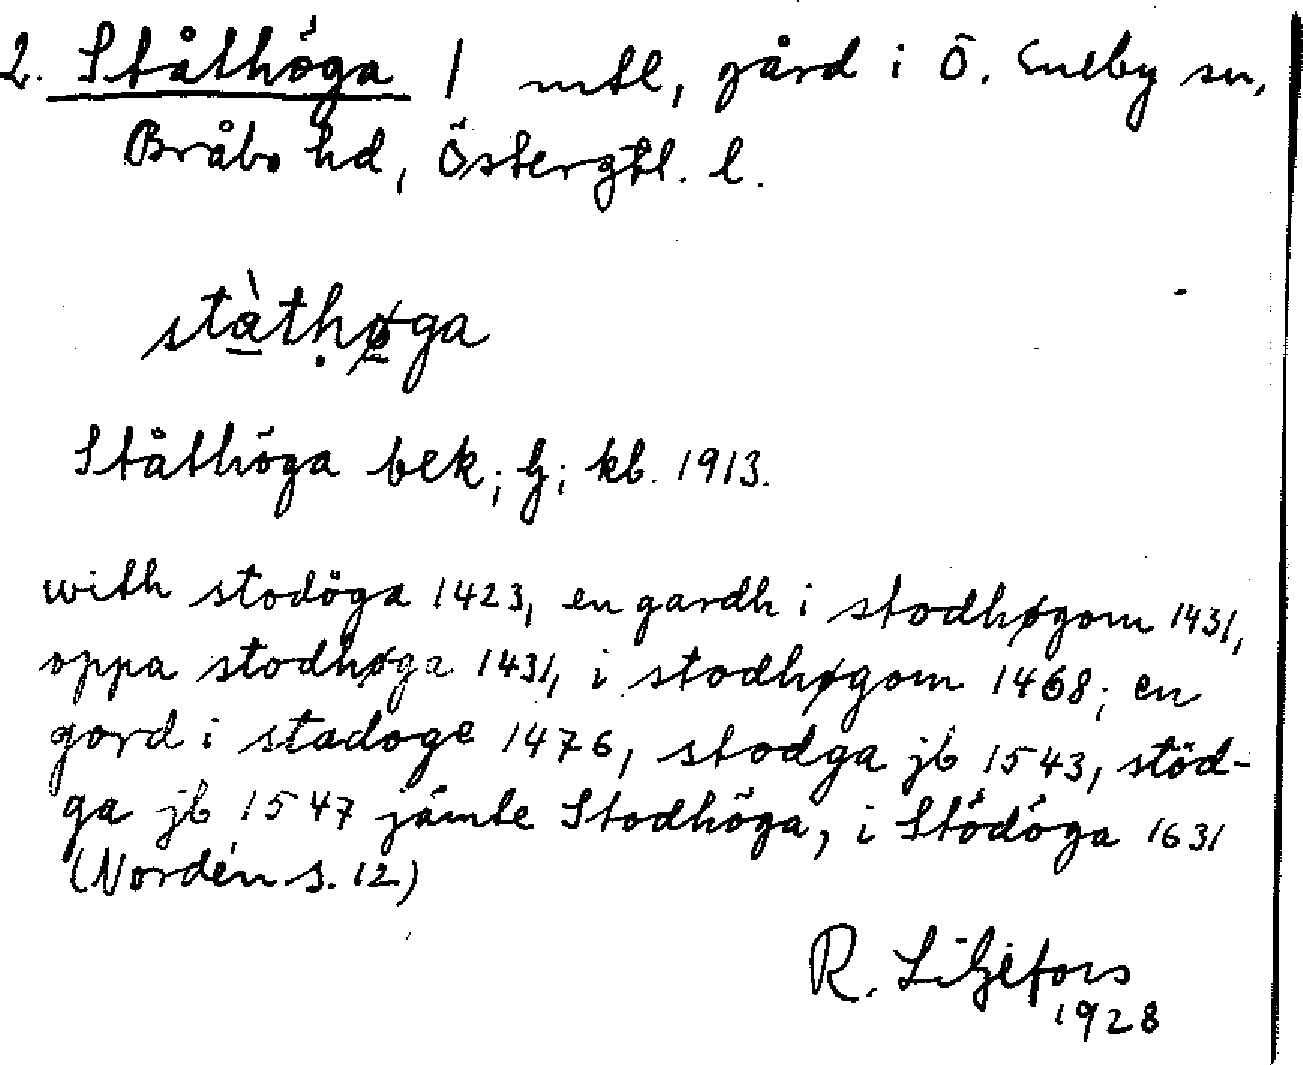 2. Ståthöga 1 mtl, gård i Ö. Eneby sn,
Bråbo hd, Östergtl. l.
stàthøga
Ståthöga bek; G; kb. 1913.
with stodöga 1423, en gardh i stodhøgom 1431,
oppa stodhøga 1431, i stodhøgom 1468; en
gord i stadoge 1476, stodga jb 1543, stöd-
ga jb 1547 jämte Stodhöga, i Stödöga 1631
(Nordén s. 12)
R. Liljefors
1928